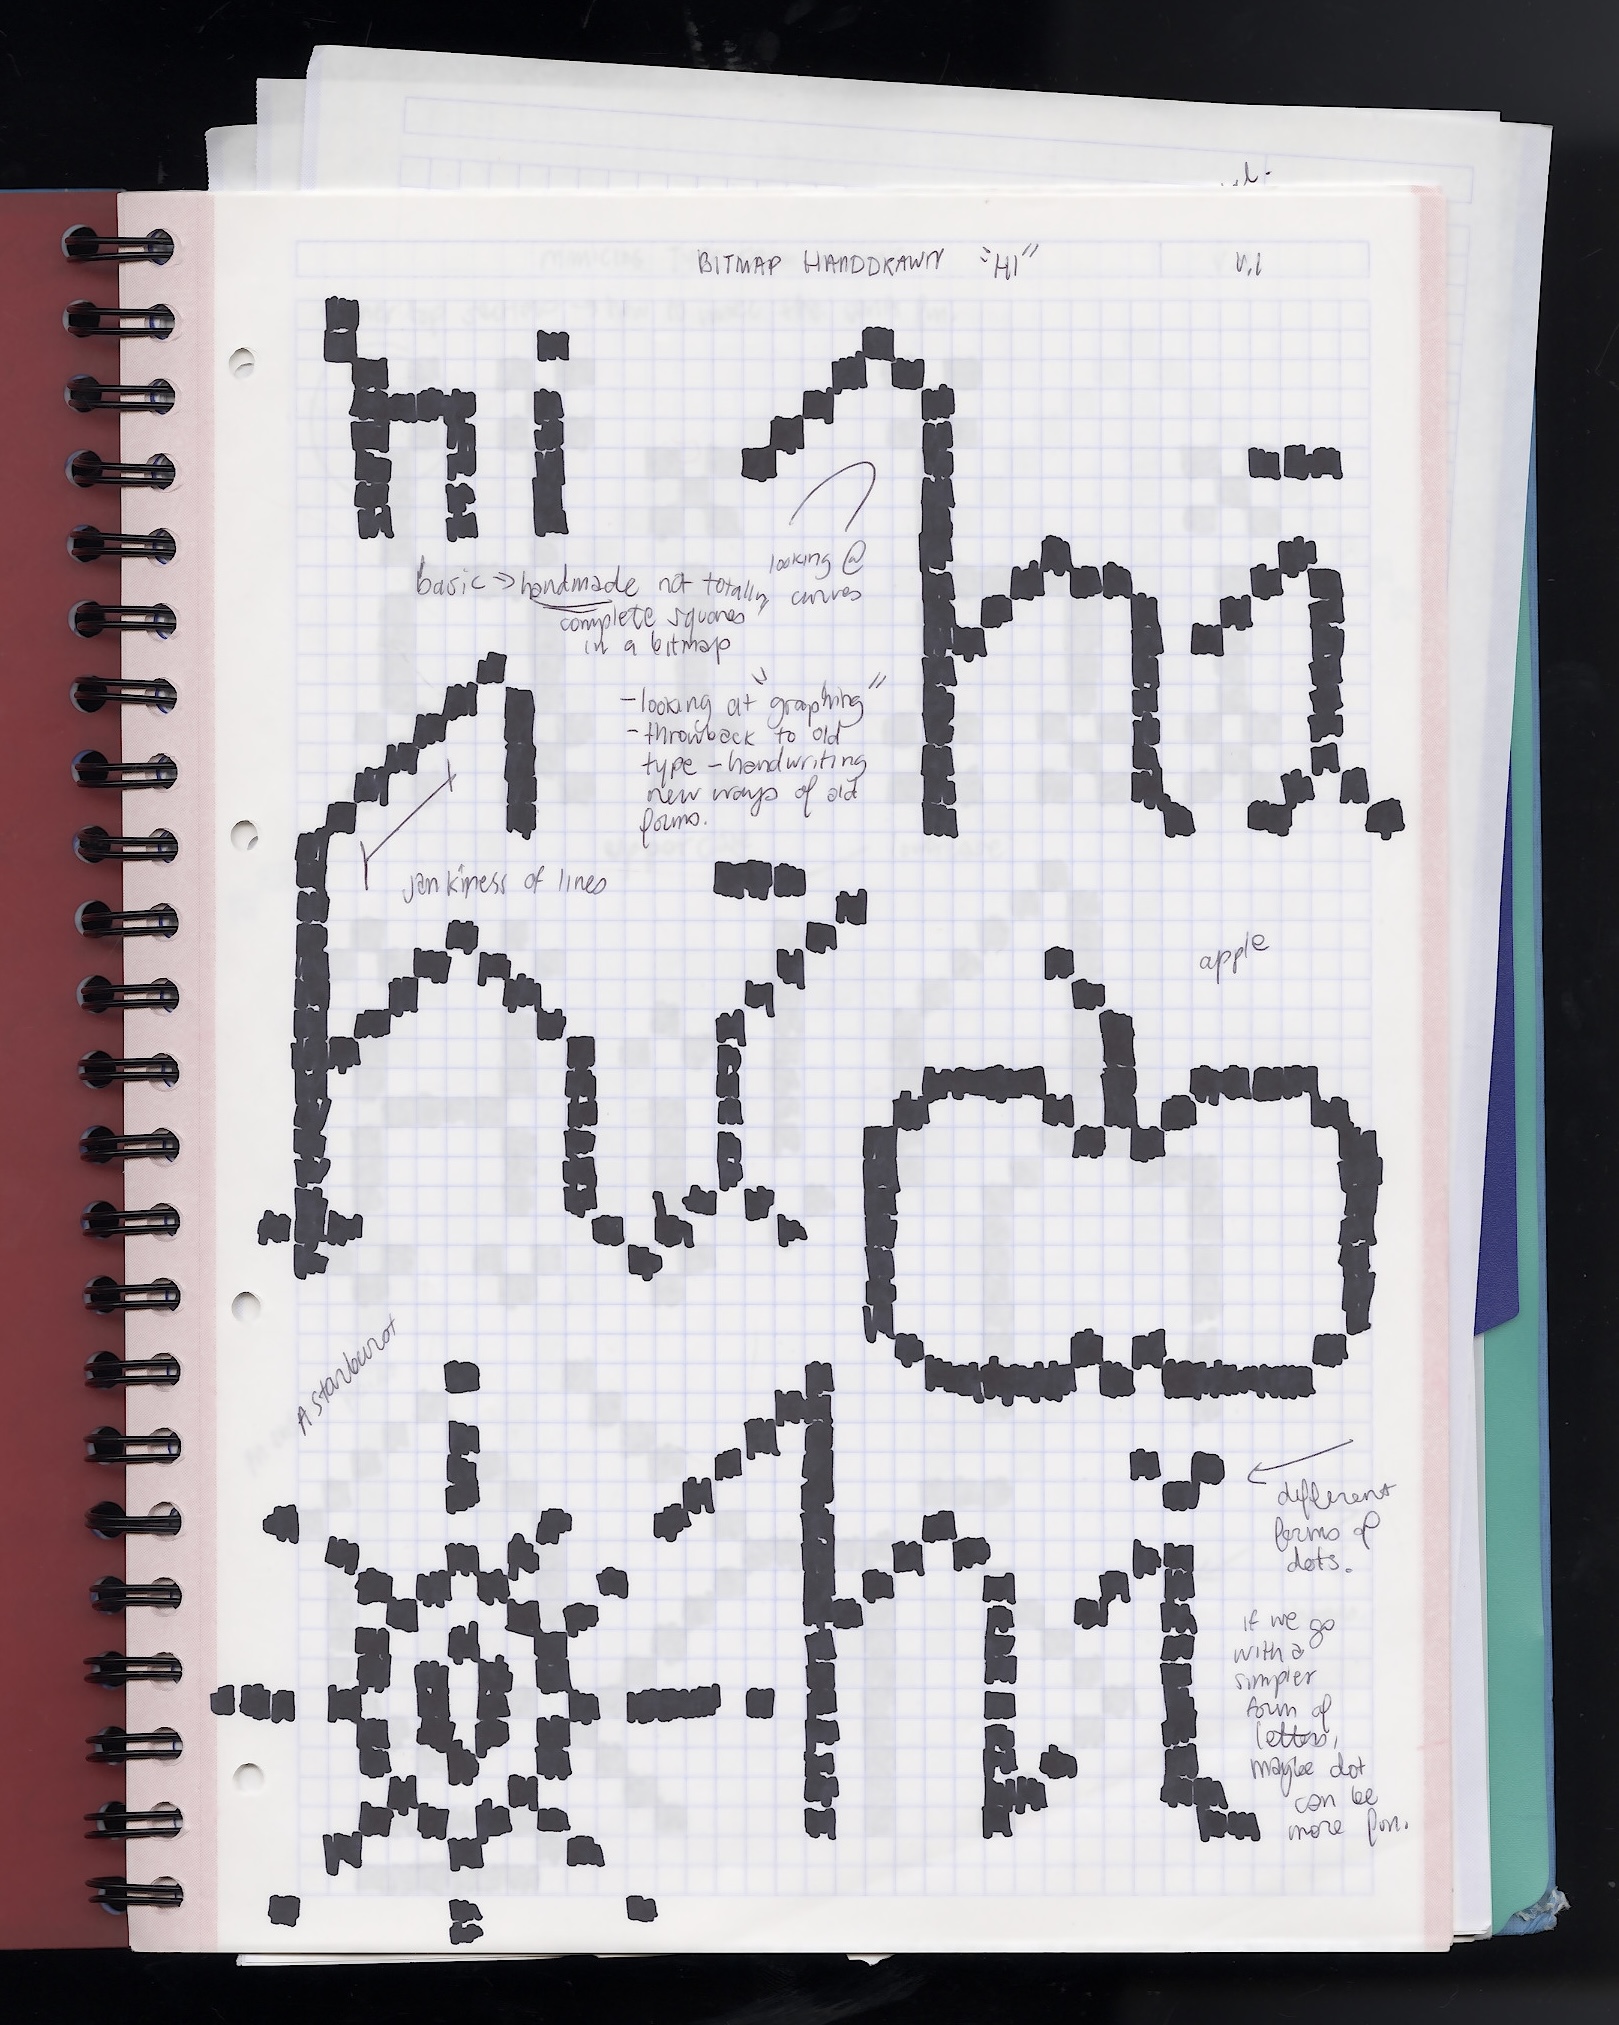 BITMAP HANDDRAWN "HI"
V.1
hi
hi
basic → handmade not totally
complete squares
in a bitmap
looking @
curves
- looking at "graphing"
- throwback to old
type - handwriting
new ways of old
forms.
jankiness of lines
hi
apple
A starburst
hi
different
forms of
dots.
if we go
with a
simpler
form of
letters,
maybe dot
can be
more fun.